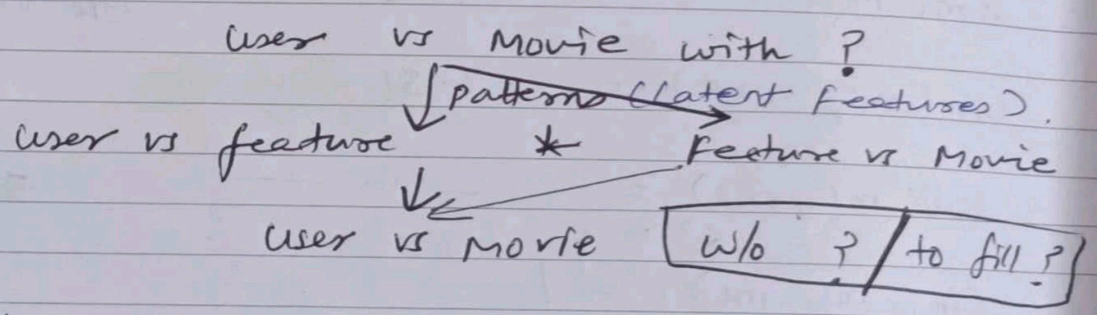 user vs Movie with ?
patterns (latent features).
user vs feature * Feature vs Movie
user vs Movie w/o ? / to fill ?